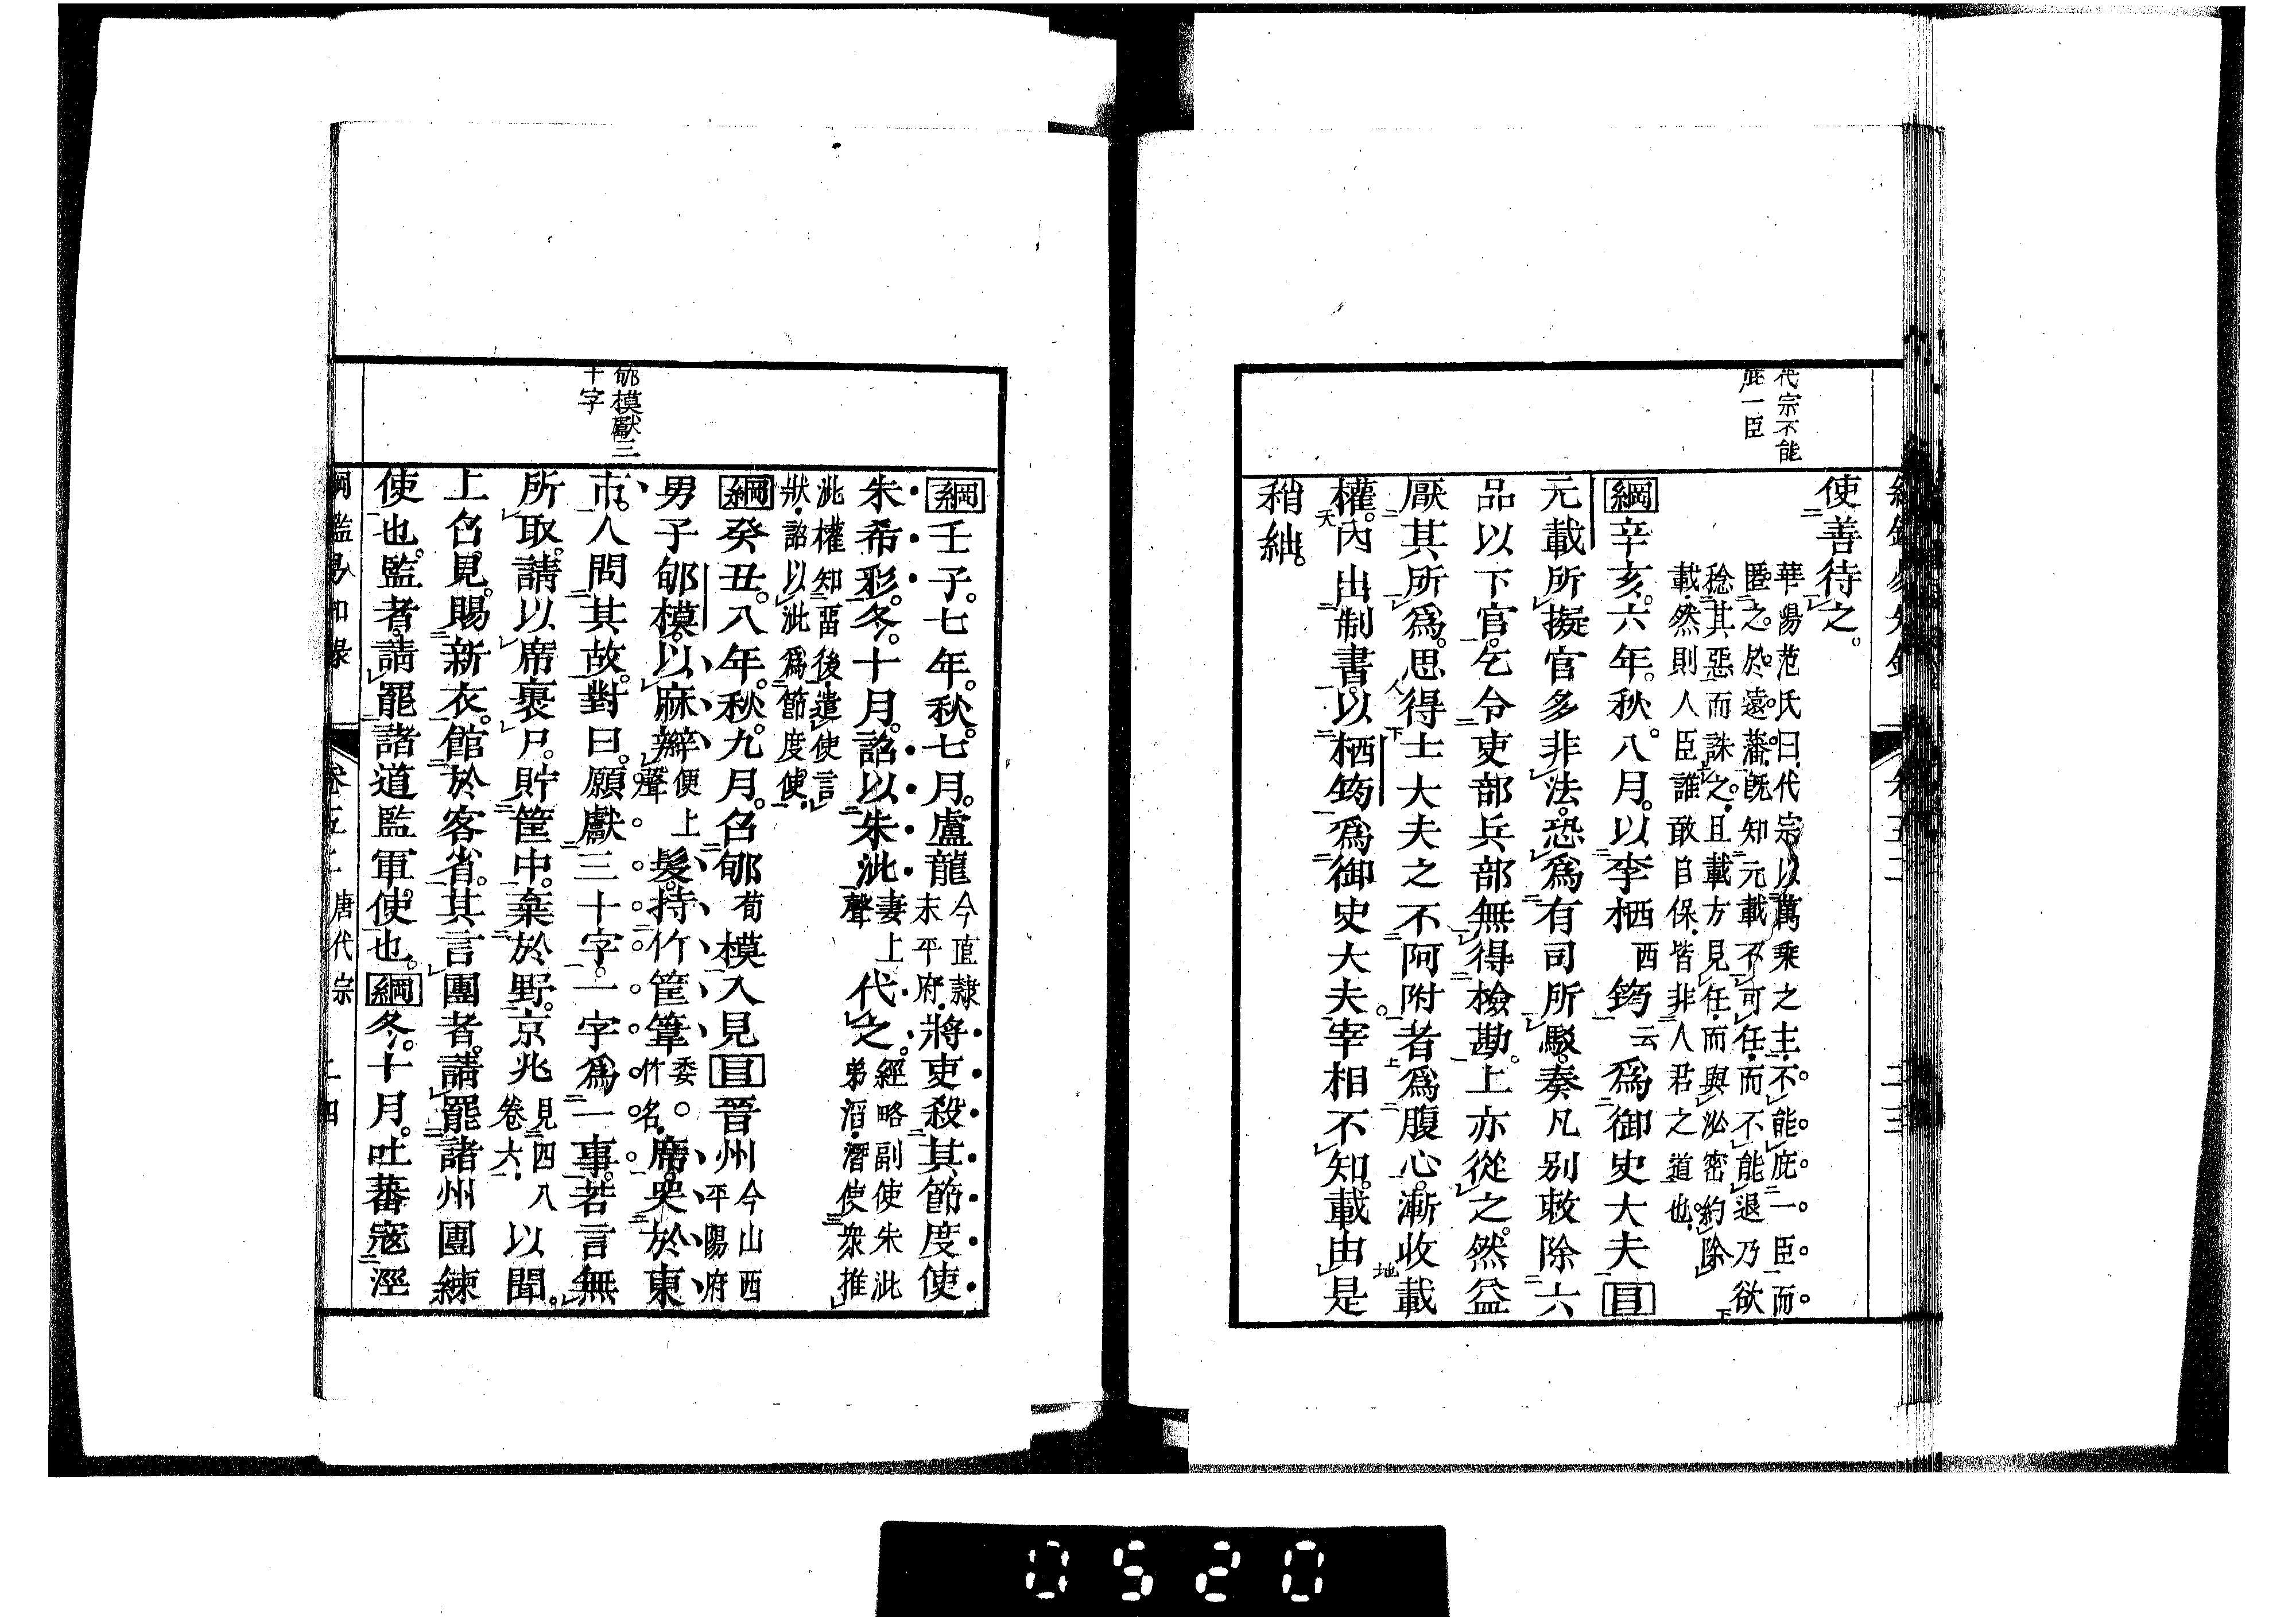 代宗不能
庇一臣
使善待之。
華陽范氏曰、代宗以萬乘之主、不能庇一臣、而
匿之於遠藩、既知元載不可任、而不能退、乃欲
稔其惡而誅之、且載方見任、而與泌密約除
載、然則人臣誰敢自保、皆非人君之道也、
綱辛亥。六年。秋。八月。以李栖西筠云爲御史大夫目
元載所擬官多非法。恐爲有司所駁。奏凡別敕除六
品以下官。乞令吏部兵部無得檢勘。上亦從之。然益
厭其所爲。思得士大夫之不阿附者爲腹心。漸收載
權。內出制書。以栖筠爲御史大夫。宰相不知。載由是
稍絀。
綱壬子。七年。秋。七月。盧龍今直隸
末平府、將吏殺其節度使
朱希彩。冬。十月。詔以朱泚妻上
聲代之。經略副使朱泚
弟滔、潛使衆推
泚權知留後、遣使言
狀、詔以泚爲節度使、
綱癸丑。八年。秋。九月。召郇荀模入見目晉州今山西
平陽府
男子郇模。以麻辮便上
聲髮。持竹筐葦委
竹名、席。哭於東
市。人問其故。對曰。願獻三十字。一字爲一事。若言無
所取。請以席裹尸。貯筐中。棄於野。京兆見四八
卷六、以聞。
上召見。賜新衣。館於客省。其言團者。請罷諸州團練
使也。監者。請罷諸道監軍使也。綱冬。十月。吐蕃寇涇
郇模獻三
十字
綱鑑易知錄
卷五二 唐代宗
二四